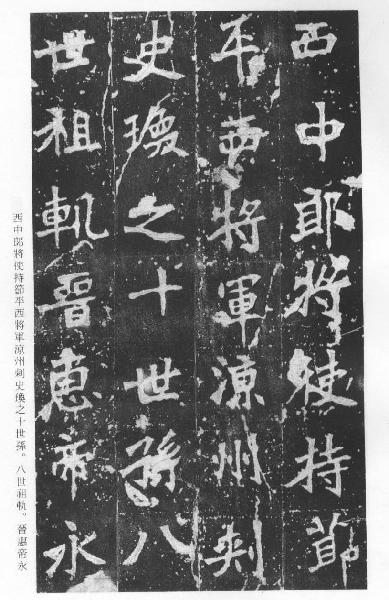 西中郎将使持節
平西將軍涼州刺
史瓊之十世孫八
世祖軌晉惠帝永
西中郎將使持節平西將軍涼州刺史瓊之十世孫。八世祖軌。晉惠帝永